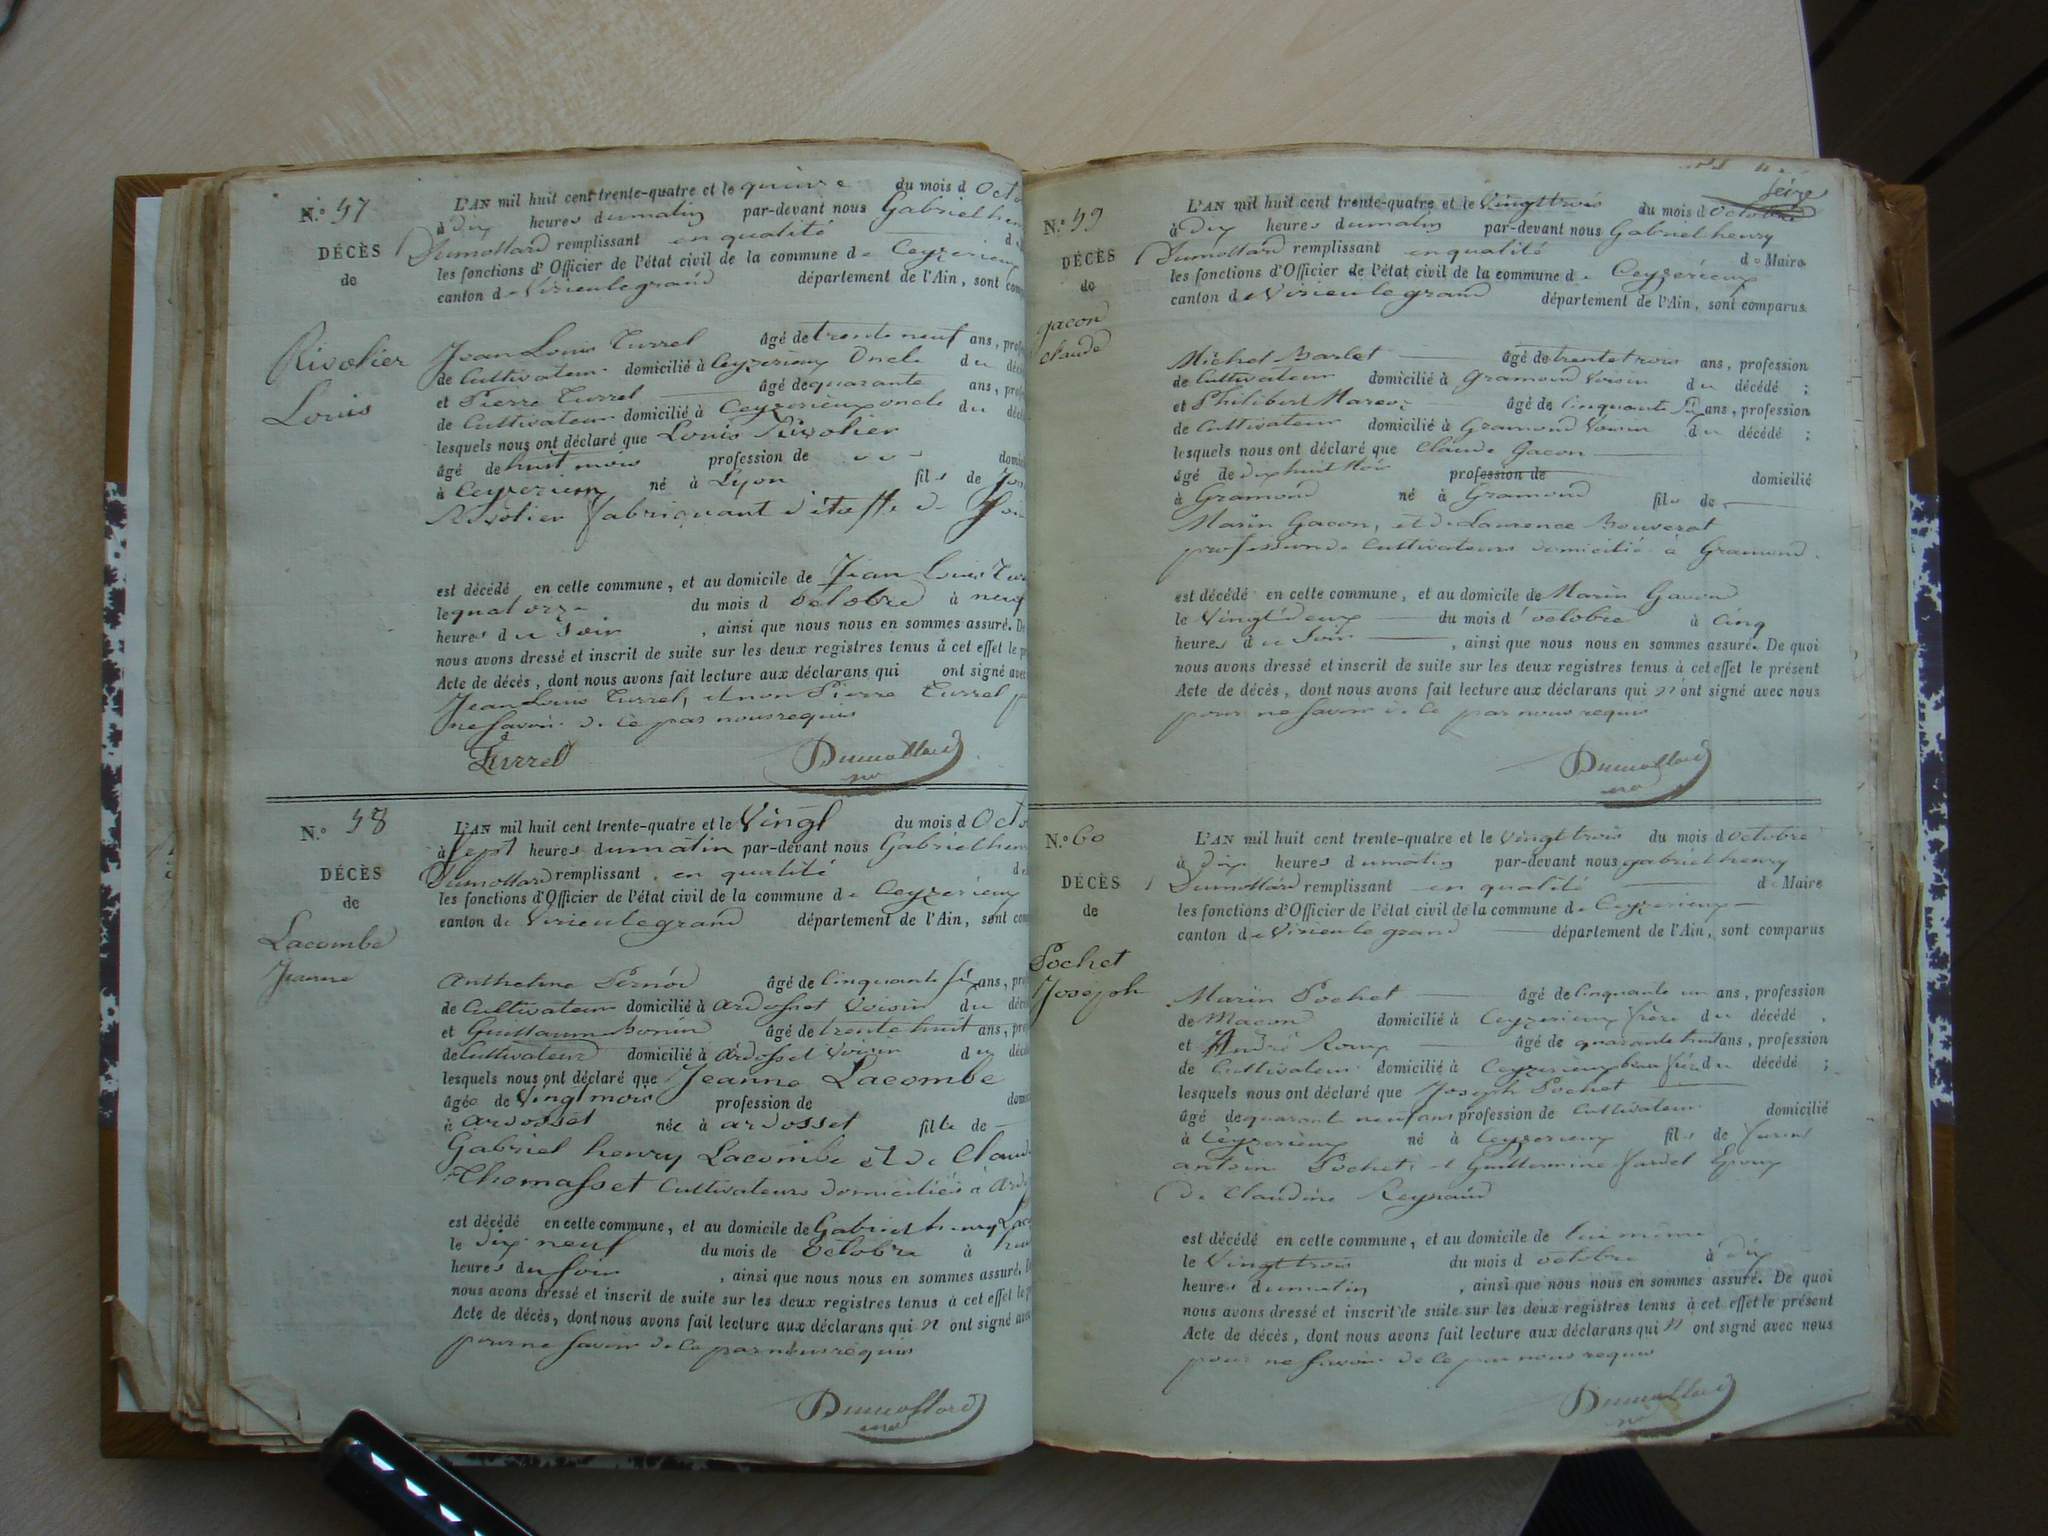 N.º 57
DÉCÈS
de
Rivolier
Louis
L'AN mil huit cent trente-quatre et le quinze du mois d Octo
à dix heures du matin par-devant nous Gabriel hen
Dumollard remplissant en qualité d
les fonctions d'Officier de l'état civil de la commune de Ceyzerieux
canton de Virieu le grand département de l'Ain, sont com
Jean Louis Turrel âgé de trente neuf ans, prof
de Cultivateur domicilié à Ceyzerieux Oncle du déc
et Pierre Turrel âgé de quarante ans, prof
de Cultivateur domicilié à Ceyzerieux oncle du déc
lesquels nous ont déclaré que Louis Rivolier
âgé de huit mois profession de domi
à Ceyzerieux né à Lyon fils de
Rivolier fabriquant d'étoffe de
est décédé en cette commune, et au domicile de Jean Louis Tur
le quatorze du mois d octobre à neuf
heures du Soir, ainsi que nous nous en sommes assuré. De
nous avons dressé et inscrit de suite sur les deux registres tenus à cet effet le p
Acte de décès, dont nous avons fait lecture aux déclarans qui ont signé avec
Jean Louis Turrel, et non Pierre Turrel p
ne savoir de ce par nous requis
Turrel Dumollard
N.º 58
DÉCÈS
de
Lacombe
Jeanne
L'AN mil huit cent trente-quatre et le Vingt du mois d Octo
à Sept heures du matin par-devant nous Gabriel hen
Dumollard remplissant en qualité d
les fonctions d'Officier de l'état civil de la commune de Ceyzerieux
canton de Virieu le grand département de l'Ain, sont com
Anthelme Pernod âgé de Cinquante six ans, pro
de Cultivateur domicilié à Ardosset Voisin du déc
et Guillaume Bonin âgé de trente huit ans, pro
de Cultivateur domicilié à Ardosset Voisin du déc
lesquels nous ont déclaré que Jeanne Lacombe
âgée de Vingt mois profession de domi
à Ardosset née à ardosset fille de
Gabriel henry Lacombe et de Claud
Thomasset Cultivateurs domiciliés à Ard
est décédé en cette commune, et au domicile de Gabriel henry Lac
le dix neuf du mois de octobre à
heures du soir, ainsi que nous nous en sommes assuré.
nous avons dressé et inscrit de suite sur les deux registres tenus à cet effet le p
Acte de décès, dont nous avons fait lecture aux déclarans qui n' ont signé avec
pour ne savoir de ce par nous requis
Dumollard
N.º 59
DÉCÈS
de
gacon
claude
L'AN mil huit cent trente-quatre et le Vingt trois du mois d Octobre
à dix heures du matin par-devant nous Gabriel henry
Dumollard remplissant en qualité de Maire
les fonctions d'Officier de l'état civil de la commune de Ceyzerieux
canton de Virieu le grand département de l'Ain, sont comparus
Michel Barlet âgé de trente trois ans, profession
de Cultivateur domicilié à Gramond Voisin du décédé ;
et Philibert âgé de Cinquante six ans, profession
de Cultivateur domicilié à Gramond Voisin du décédé ;
lesquels nous ont déclaré que Claude Gacon
âgé de dix huit Mois profession de domicilié
à Gramond né à Gramond fils de
Marin Gacon, et de Laurence Bouverat
profession de Cultivateurs domicilié à Gramond.
est décédé en cette commune, et au domicile de Marin Gacon
le Vingt deux du mois d'octobre à Cinq
heures du Soir, ainsi que nous nous en sommes assuré. De quoi
nous avons dressé et inscrit de suite sur les deux registres tenus à cet effet le présent
Acte de décès, dont nous avons fait lecture aux déclarans qui n'ont signé avec nous
pour ne savoir de ce par nous requis
Dumollard
N.º 60
DÉCÈS
de
Pochet
Joseph
L'AN mil huit cent trente-quatre et le Vingt trois du mois d octobre
à dix heures du matin par-devant nous gabriel henry
Dumollard remplissant en qualité de Maire
les fonctions d'Officier de l'état civil de la commune de Ceyzerieux
canton de Virieu le grand département de l'Ain, sont comparus
Marin Pochet âgé de Cinquante un ans, profession
de Maçon domicilié à Ceyzerieux frère du décédé,
et André Roux âgé de quarante huit ans, profession
de Cultivateur domicilié à Ceyzerieux beau frère du décédé ;
lesquels nous ont déclaré que Joseph Pochet
âgé de quarante neuf ans profession de Cultivateur domicilié
à Ceyzerieux né à Ceyzerieux fils de furent
antoine Pochet et Guillermine Epoux
de Claudine Reynaud
est décédé en cette commune, et au domicile de lui même
le Vingt trois du mois d octobre à dix
heures du matin, ainsi que nous nous en sommes assuré. De quoi
nous avons dressé et inscrit de suite sur les deux registres tenus à cet effet le présent
Acte de décès, dont nous avons fait lecture aux déclarans qui n' ont signé avec nous
pour ne savoir de ce par nous requis
Dumollard